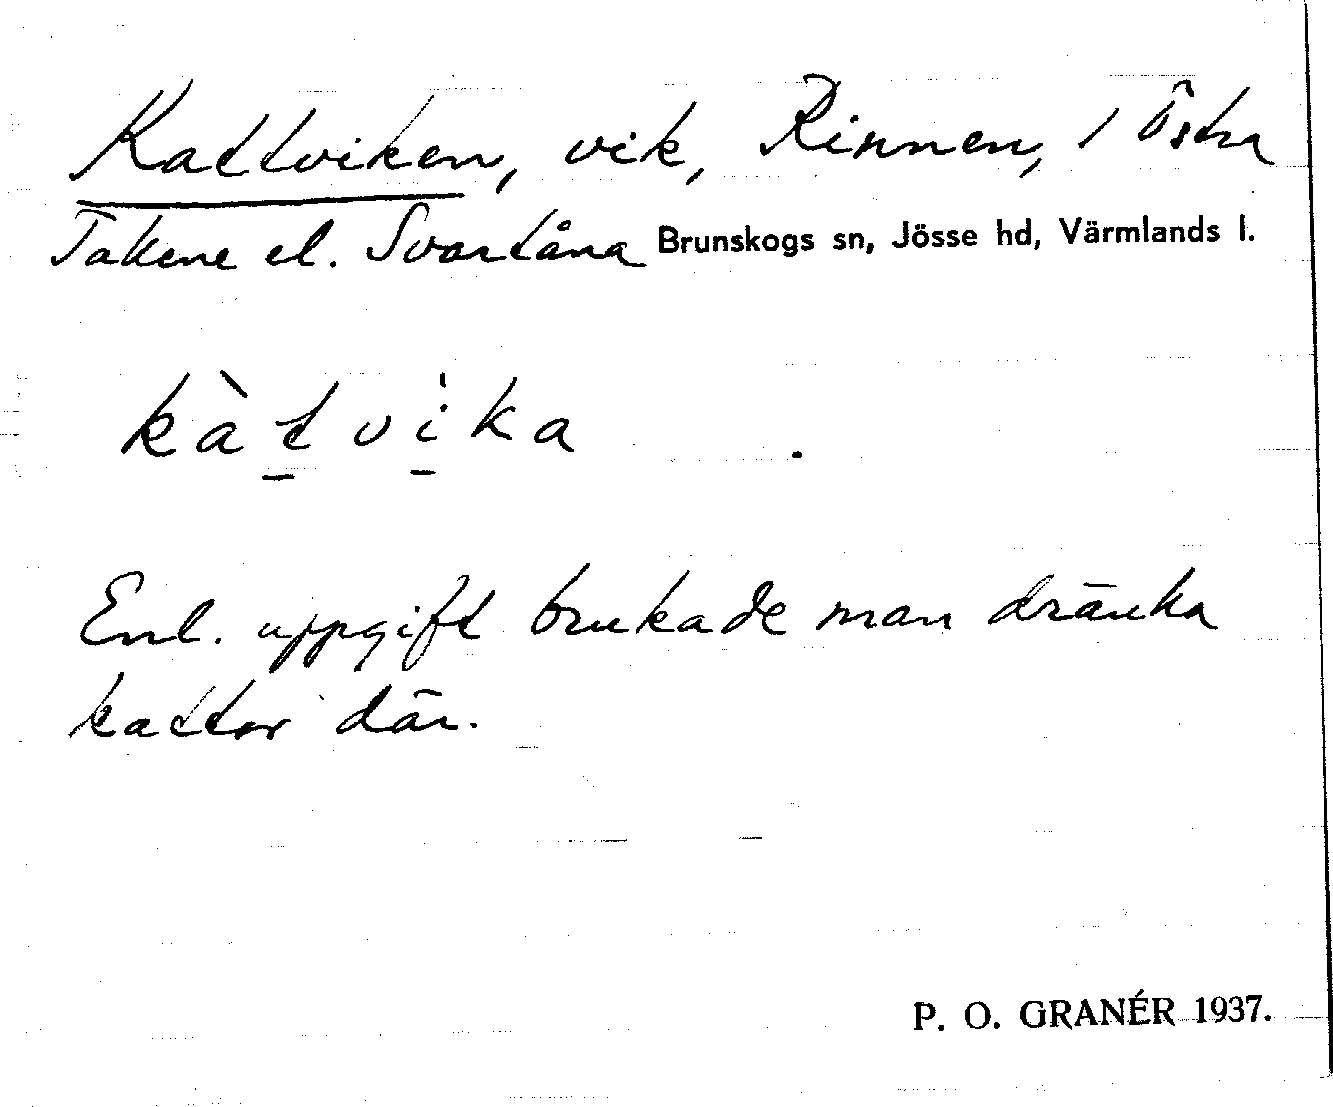 Kattviken, vik, Rinnen, i Östra
Takene el. Svartåna Brunskogs sn, Jösse hd, Värmlands l.
kàtvi̍ka .
Enl. uppgift brukade man dränka
kattor där.
P. O. GRANÉR 1937.